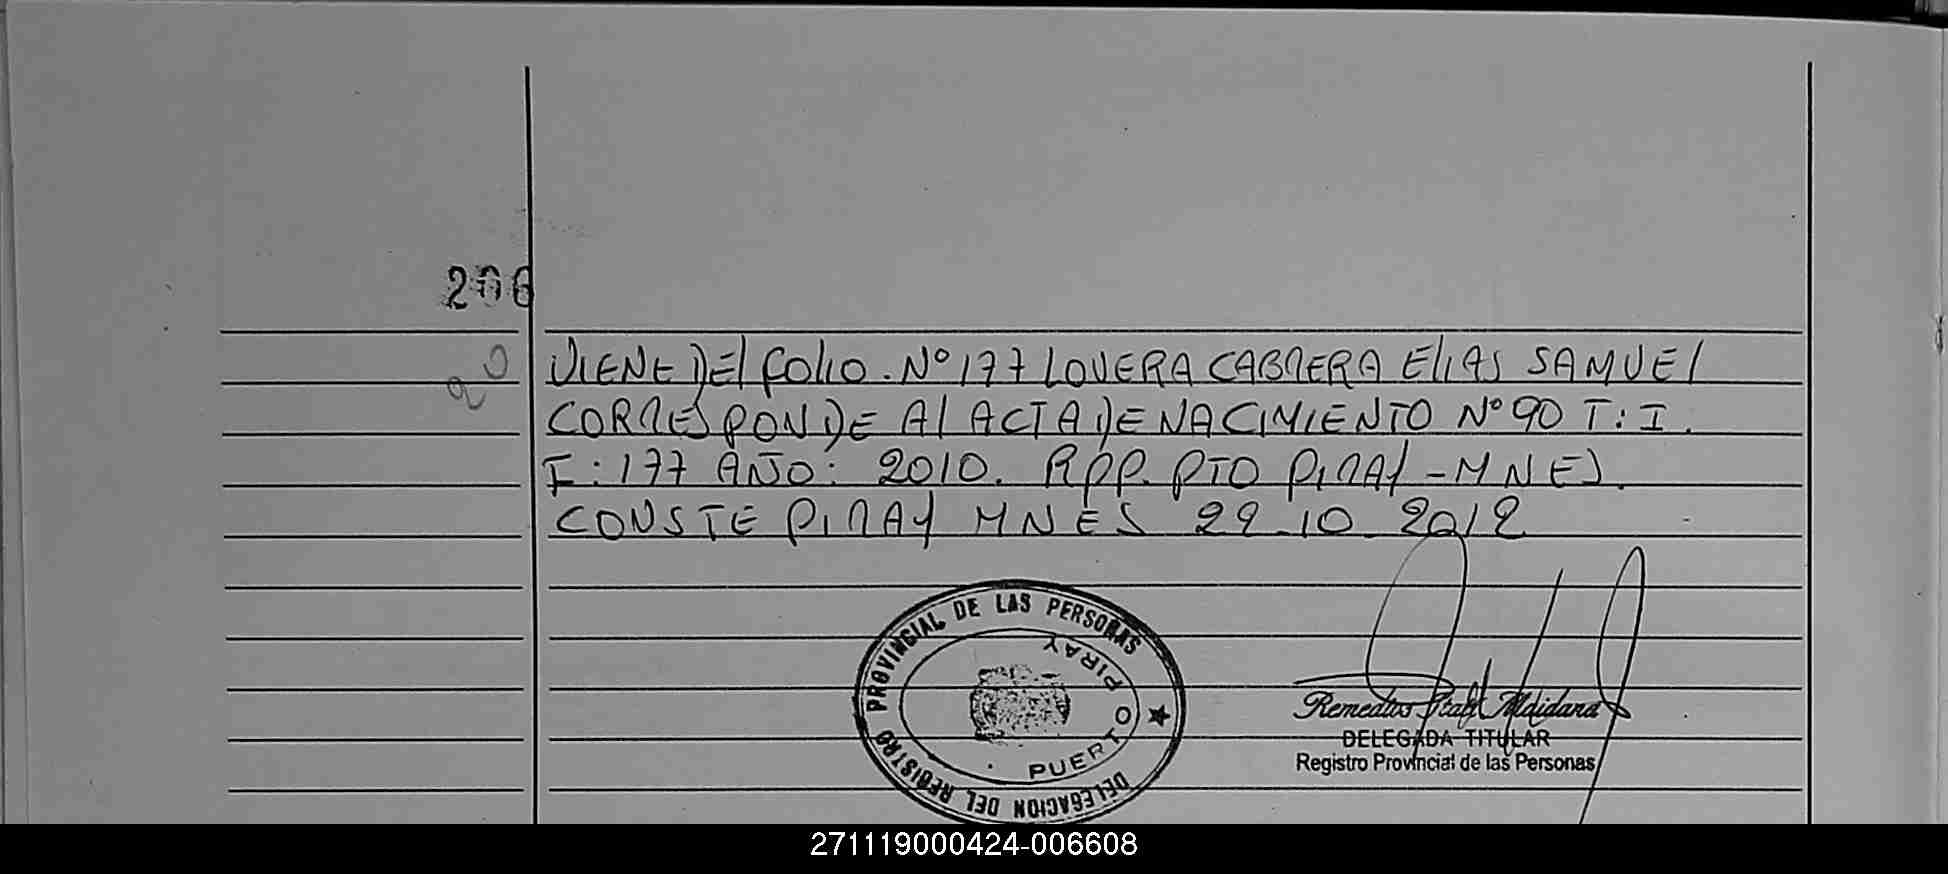 206
VIENE DEL FOLIO. Nº 177 LOVERA CABRERA ELIAS SAMUEL
CORRESPONDE Al ACTA DE NACIMIENTO Nº 90 T: I.
F: 177 AÑO: 2010. RPP. PTO PIRAY - MNES.
CONSTE PIRAY MNES 29-10-2012
DELEGACION DEL REGISTRO PROVINCIAL DE LAS PERSONAS
PUERTO PIRAY
Remedios Maidana
DELEGADA TITULAR
Registro Provincial de las Personas
271119000424-006608